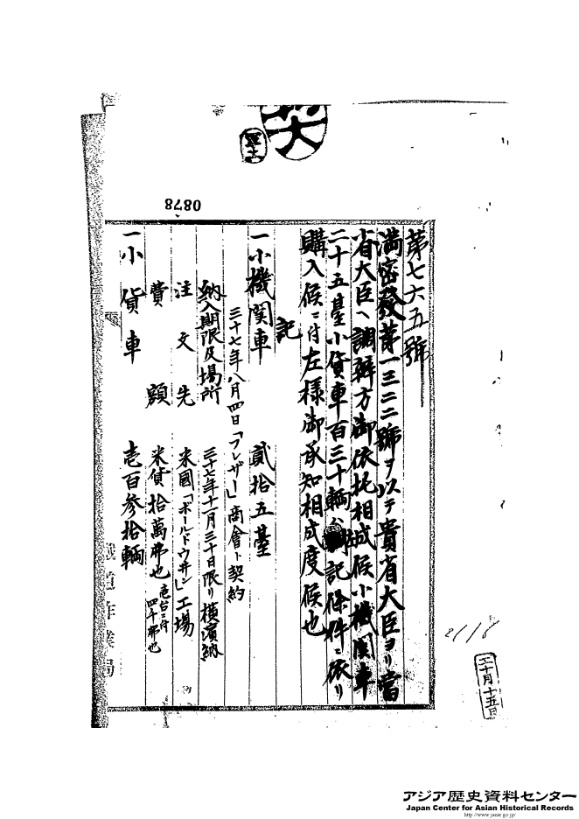 0878
第七六五號
満密發第一三二二號ヲ以テ貴省大臣ヨリ當
省大臣ヘ調辨方御依托相成候小機関車
二十五臺小貨車百三十輌記条件ニ依リ
購入候ニ付左様御承知相成度候也
記
一小機関車 貳拾五臺
三十七年八月四日「フレザー」商會ト契約
納入期限及場所 三十七年十一月三十日限リ横濱納
注文先 米國「ボールドウヰン」工場
費額 米貨拾萬弗也 壱台ニ付四千弗也
一小貨車 壱百参拾輌
鐵道作業局
十月十五日
アジア歴史資料センター
Japan Center for Asian Historical Records
http://www.jacar.go.jp/